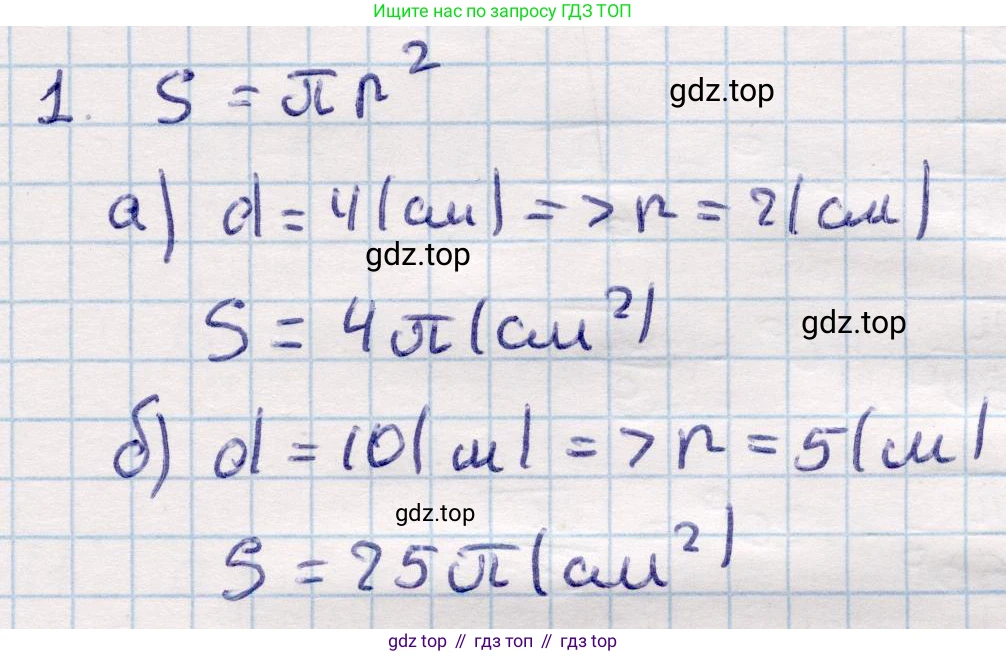 Ищите нас по запросу ГДЗ ТОП
1. S = πr²
gdz.top
а) d = 4 (см) => r = 2 (см)
gdz.top
S = 4π (см²)
gdz.top
б) d = 10 (м) => r = 5 (м)
gdz.top
S = 25π (см²)
gdz top // гдз топ // гдз top